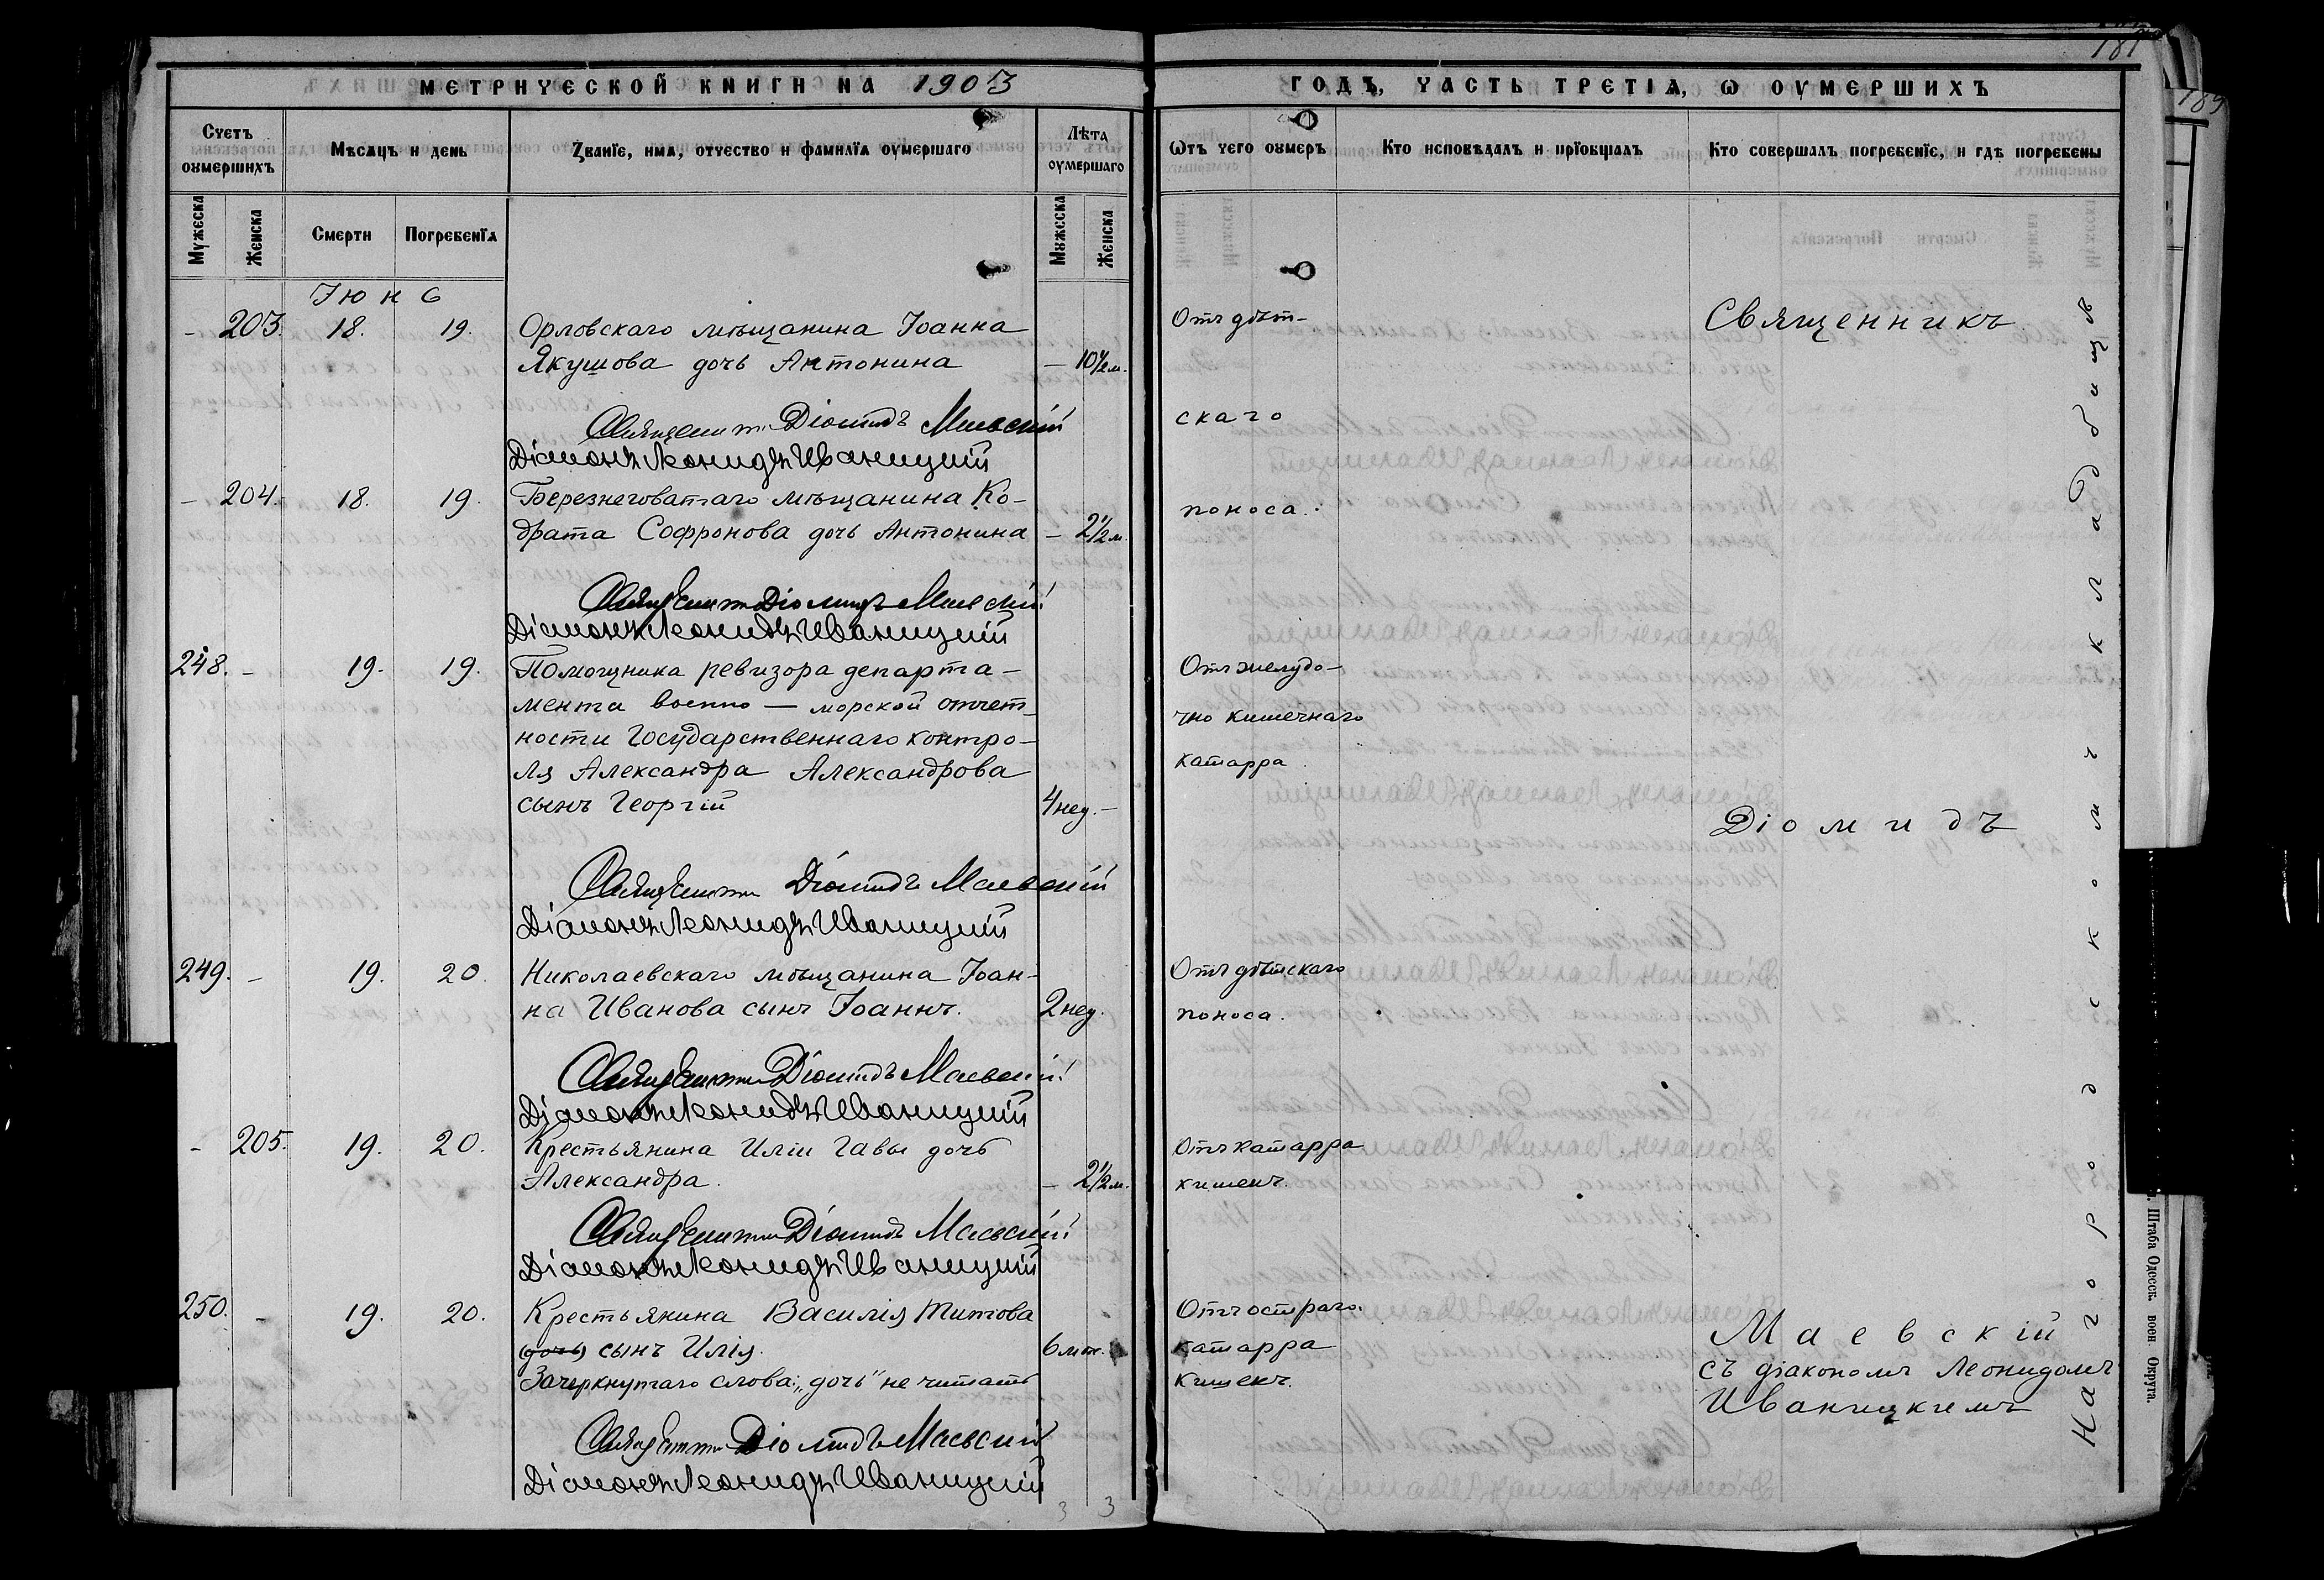 187
189
МЕТРИЧЕСКОЙ КНИГИ НА 1903
ГОДЪ, ЧАСТЬ ТРЕТІѦ, Ѡ ОУМЕРШИХЪ
Счетъ оумершихъ
Мѣсѧцъ и день
Званїе, имѧ, отчество и фамилїѧ оумершаго
Лѣта оумершаго
Ѿтъ чего оумеръ
Кто исповѣдалъ и прїобщалъ
Кто совершалъ погребенїе, и гдѣ погребены
Мужеска
Женска
Смерти
Погребенїѧ
Мужеска
Женска
Іюнь
– 203. 18. 19. Орловскаго мѣщанина Іоанна
Якушова дочь Антонина – 10½ м.
Священникъ Діомидъ Маевскій
Діаконъ Леонидъ Иваницкій
– 204. 18. 19. Березнеговатаго мѣщанина Ко-
драта Софронова дочь Антонина – 2½ м.
Священникъ Діомидъ Маевскій
Діаконъ Леонидъ Иваницкій
248. – 19. 19. Помощника ревизора департа-
мента военно – морской отчет-
ности Государственнаго контро-
ля Александра Александрова
сынъ Георгій 4 нед. –
Священникъ Діомидъ Маевскій
Діаконъ Леонидъ Иваницкій
249. – 19. 20. Николаевскаго мѣщанина Іоан-
на Иванова сынъ Іоаннъ. 2 нед.
Священникъ Діомидъ Маевскій
Діаконъ Леонидъ Иваницкій
– 205. 19. 20. Крестьянина Иліи Гавы дочь
Александра. – 2½ м.
Священникъ Діомидъ Маевскій
Діаконъ Леонидъ Иваницкій
250. – 19. 20. Крестьянина Василія Титова
(дочь) сынъ Илія. 6 м.
Зачеркнутаго слова: „дочь" не читать
Священникъ Діомидъ Маевскій
Діаконъ Леонидъ Иваницкій
3 3
Отъ дѣт-
скаго
поноса.
Отъ желудо-
чно кишечнаго
катарра
Отъ дѣтскаго
поноса.
Отъ катарра
кишекъ.
Отъ остраго
катарра
кишекъ.
Священникъ
Діомидъ
Маевскій
съ діакономъ Леонидомъ
Иваницкимъ
На городскомъ кладбищѣ
Штаба Одесск. воен. Округа.